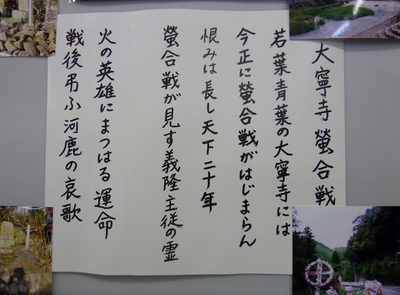 大寧寺螢合戦
若葉青葉の大寧寺には
今正に螢合戦がはじまらん
恨みは長し天下二十年
螢合戦が見す義隆主従の霊
火の英雄にまつはる運命
戦後弔ふ河鹿の哀歌